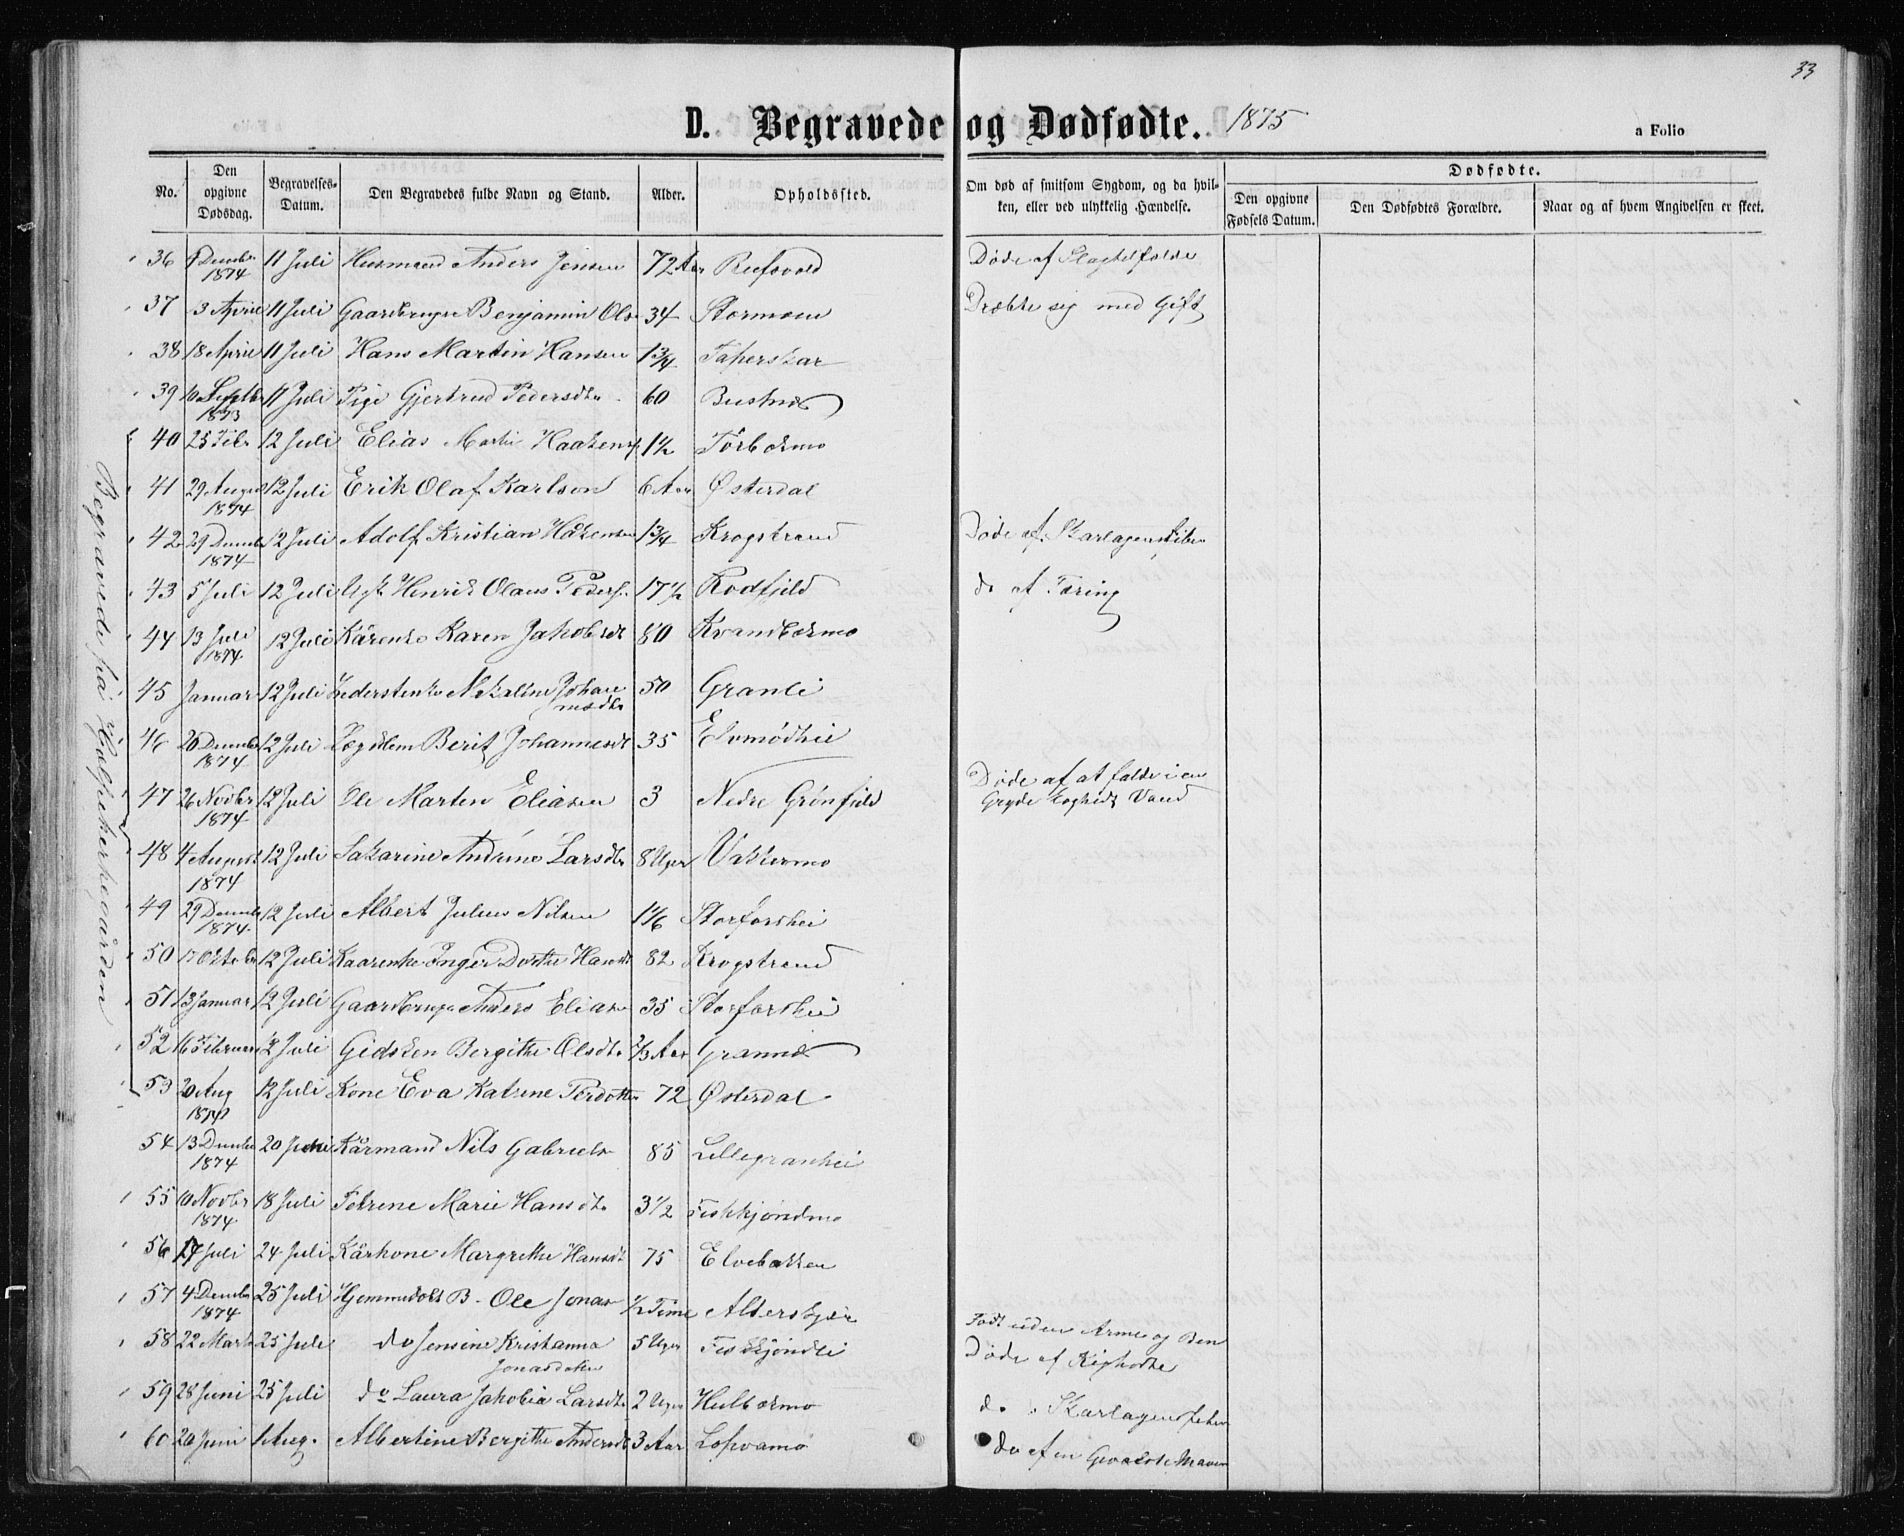 33
D. Begravede og Dødfødte. 1875
a Folio
No. | Den opgivne Dødsdag. | Begravelses-Datum. | Den Begravedes fulde Navn og Stand. | Alder. | Opholdssted. | Om død af smitsom Sygdom, og da hvilken, eller ved ulykkelig Hændelse. | Dødfødte. | Den opgivne Fødsels Datum. | Den Dødfødtes Forældre. | Naar og af hvem Angivelsen er skeet.
36 Decmbr 1874 11 Juli Husmand Anders Jensen 72 Aar Døde af
37 3 April 11 Juli Gaardbruger Benjamin Ols 34 Stormoen Dræbte sig med Gift
38 18 April 11 Juli Hans Martin Hansen 1 3/4 Taperskar
39 10 Septbr 1873 11 Juli Pige Gjertrud Pedersdtr 60 Bustnes
40 25 Febr 12 Juli Elias Martin Haakens 1 1/2 Torbekmo
41 29 August 1874 12 Juli Erik Olaf Karlson 6 Aar Østerdal
42 29 Decmbr 1874 12 Juli Adolf Kristian Håkensen 1 3/4 Krogstrand Døde af Skarlagensfeber
43 5 Juli 12 Juli Ugk Henrik Olaus Peders. 17 1/2 Rødfjeld do af Tæring
44 13 Juli 1874 12 Juli Kårenke Karen Jakobsdt 80
45 Januar 12 Juli Johannesdtr 50 Granli
46 26 Decmbr 1874 12 Juli Lægdslem Berit Johannesdt 35 Elvmødhei
47 26 Novbr 1874 12 Juli Ole Marten Eliasen 3 Nedre Grønfjeld Døde af at falde i en Gryde koghedt Vand
48 4 August 1874 12 Juli Sakarine Andrine Larsdtr 8 Uger
49 29 Decmbr 1874 12 Juli Albert Julius Nilsen 1 1/6 Storforshei
50 17 Oktober 12 Juli Kaarenke Inger Dorthe Hansdt 82 Krogstrand
51 13 Januar 12 Juli Gaardbruger Anders Eliasen 35 Storforshei
52 16 Februar 12 Juli Gidsken Bergithe Olsdtr 2/3 Aar Grannes
53 20 Aug 1874 12 Juli Kone Eva Katrine Perdotter 72 Østerdal
54 13 Decmbr 1874 20 Juni Kårmand Nils Gabriels 85 Lillegranhei
55 10 Novbr 1874 18 Juli Petrine Marie Hansdtr 3 1/2 Fiskkjøndmo
56 17 Juli 24 Juli Kårkone Margrethe Hansdt 75 Elvebakken
57 4 Decmbr 1874 25 Juli Hjemmedøbt B. Ole Jonas 1/2 Time Født uden Arme og Ben
58 22 Marts 25 Juli do Jensine Kristianna Jonasdatter 5 Uger Døde af Kighoste
59 28 Juni 25 Juli do Laura Jakobia Larsdtr 2 Uger do Skarlagensfeber
60 20 Juni 1 Aug. Albertine Bergithe Andersdt 3 Aar
Begravede på Hjelpekirkegården